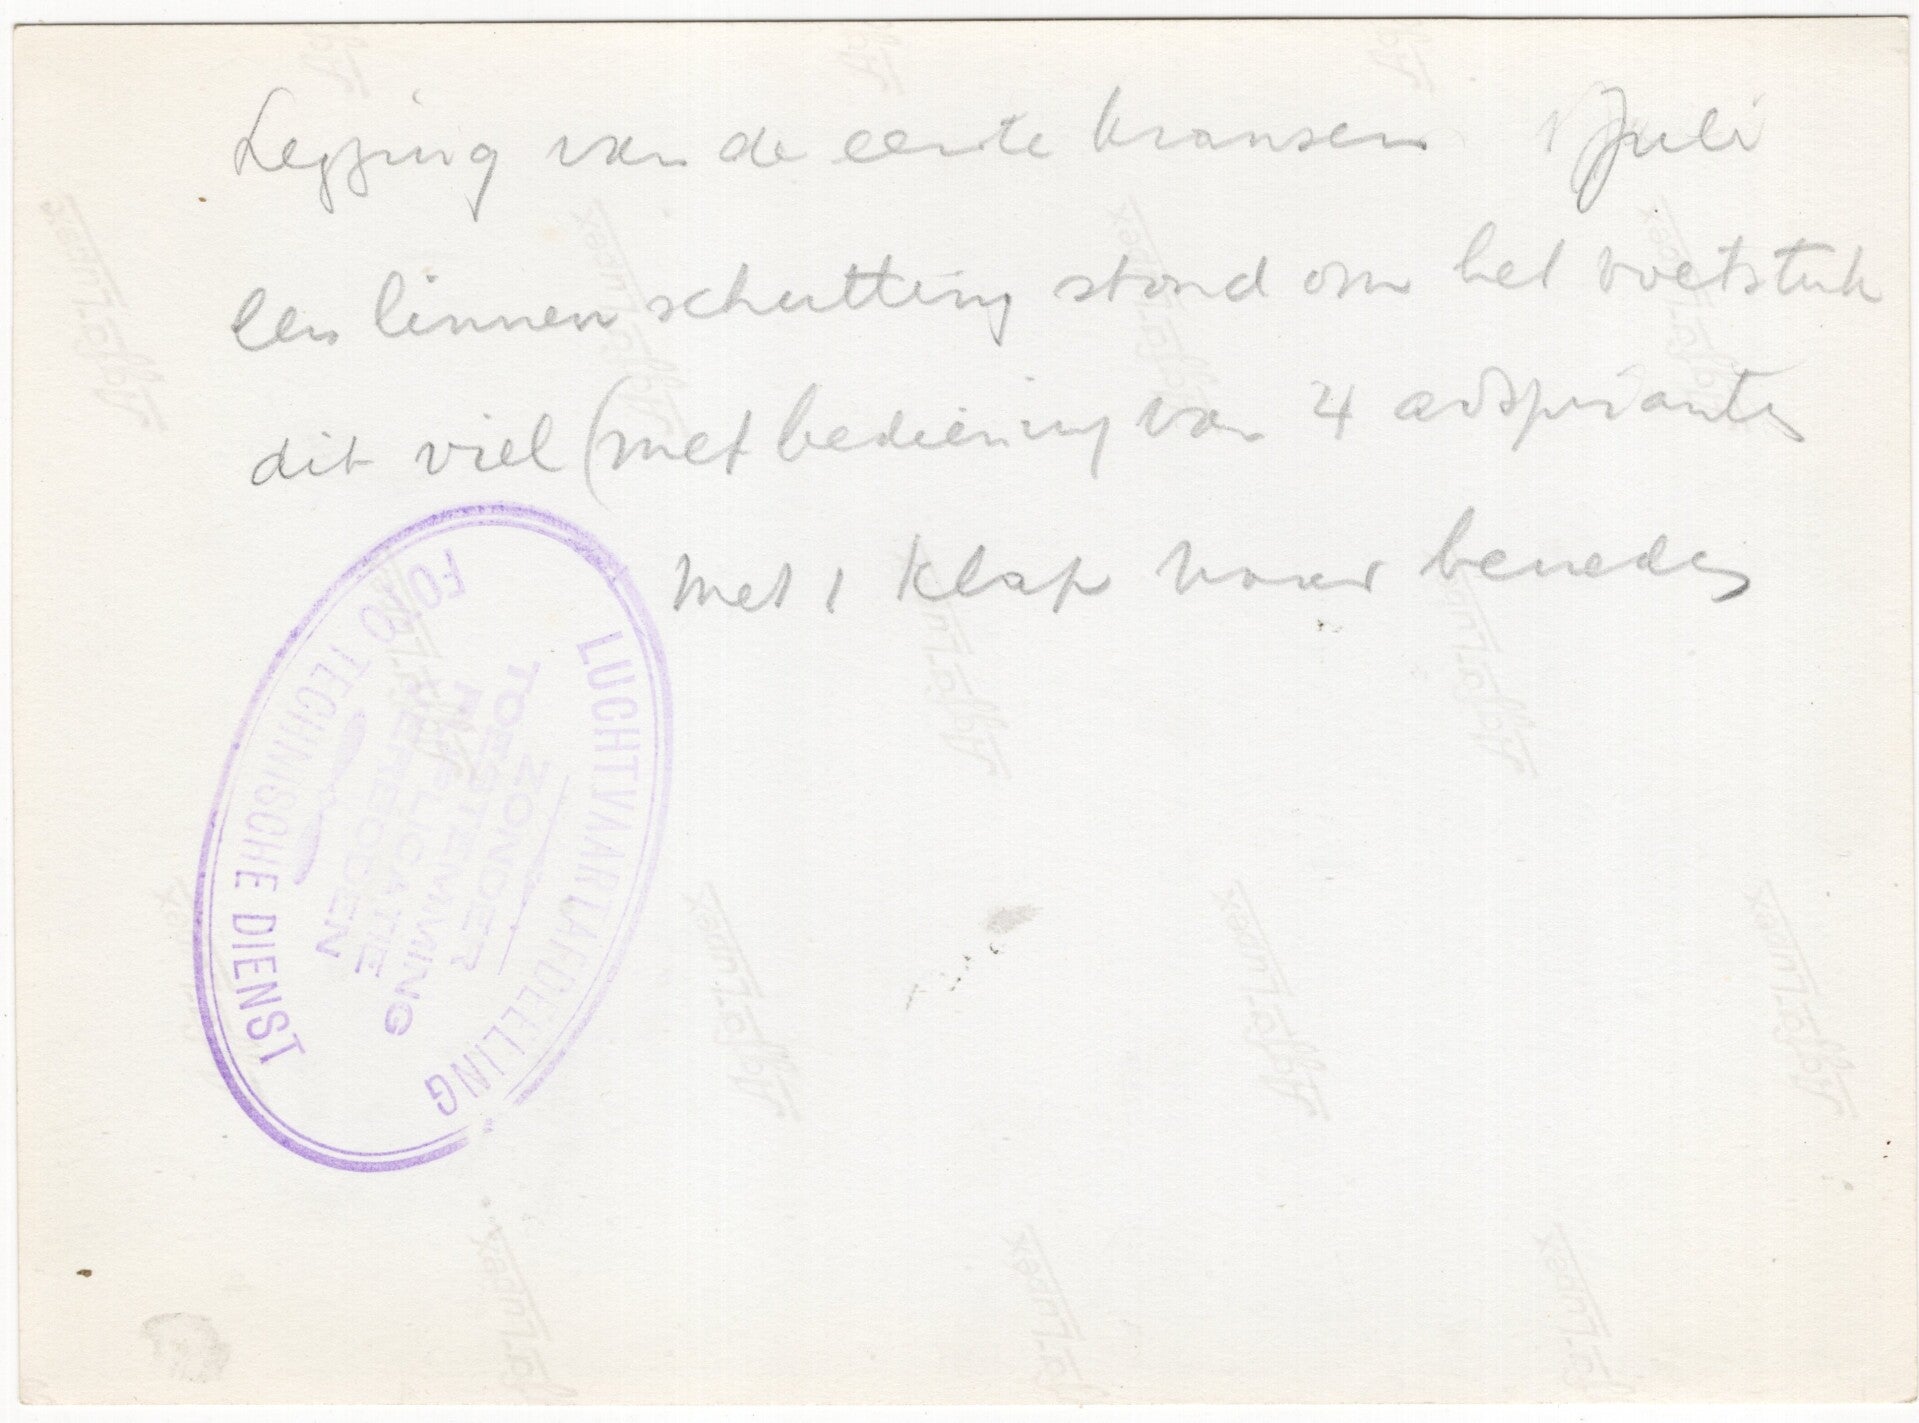 Legging van de eerste kransen 1 Juli
een linnen schutting stond om het voetstuk
dit viel (met bediening van 4 adspiranten
met 1 klap naar beneden
LUCHTVAARTAFDEELING
ZONDER
TOESTEMMING
REPLICATIE
VERBODEN
FOTO TECHNISCHE DIENST
Agfa-Lupex